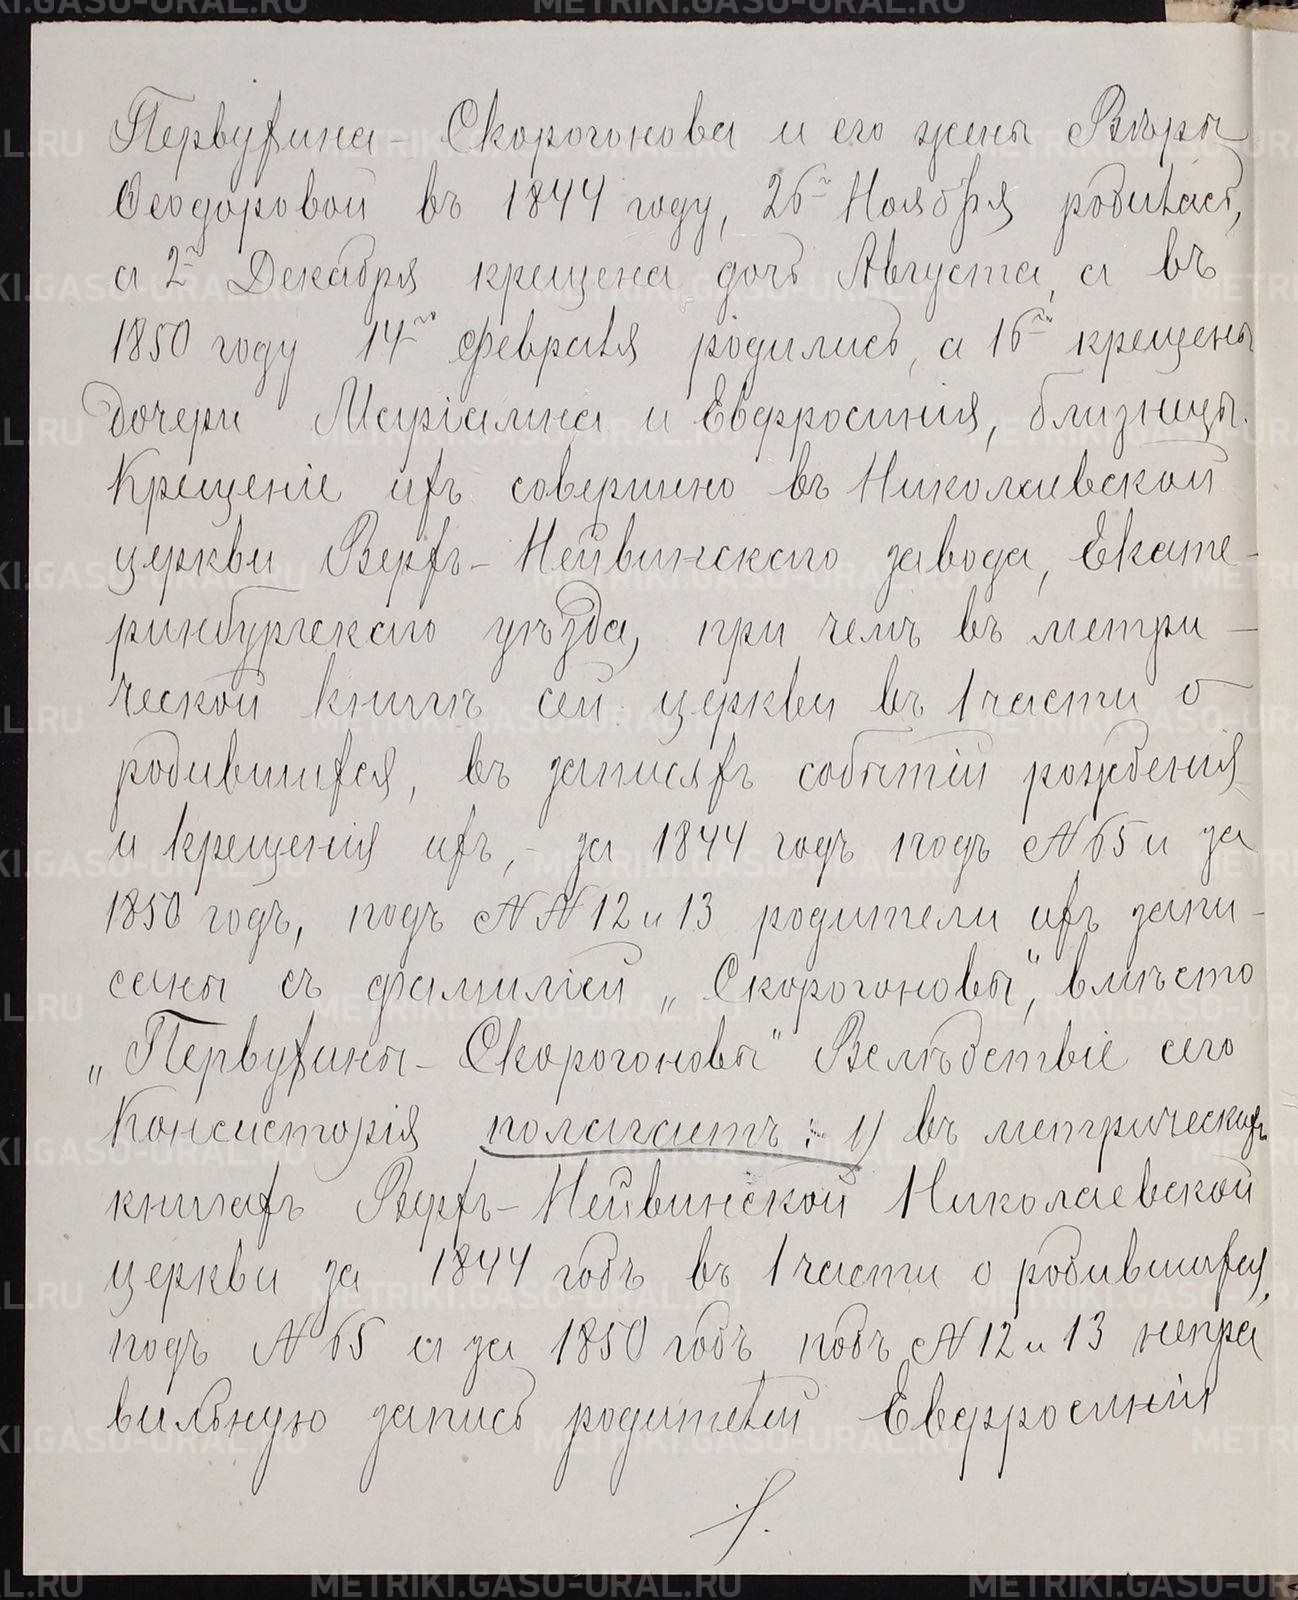 Первухина - Скорогонова и его жены Вѣры
Ѳеодоровой въ 1844 году, 26го Ноября родилась,
а 2го Декабря крещена дочь Августа, а въ
1850 году 14го февраля родились, а 16го крещены
дочери Маріамна и Евфросинія, близнецы.
Крещеніе ихъ совершено въ Николаевской
церкви Верхъ-Нейвинскаго завода, Екате-
ринбургскаго уѣзда, при чемъ въ метри-
ческой книгѣ сей церкви въ 1 части о
родившихся, въ записяхъ событій рожденія
и крещенія ихъ, - за 1844 годъ подъ № 65 и за
1850 годъ, подъ №№ 12 и 13 родители ихъ запи-
саны съ фамиліей „Скорогоновы", вмѣсто
„Первухины - Скорогоновы" Вслѣдствіе сего
Консисторія полагаетъ: 1) въ метрическихъ
книгахъ Верхъ-Нейвинской Николаевской
церкви за 1844 годъ въ 1 части о родившихся,
подъ № 65 и за 1850 годъ подъ № 12 и 13 непра
вильную запись родителей Евфросиніи
METRIKI.GASO-URAL.RU